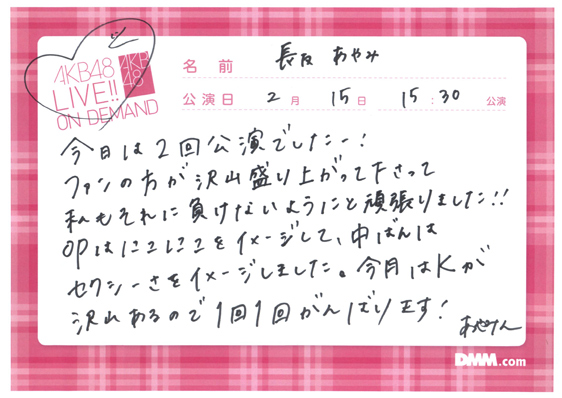 AKB48
LIVE!!
ON DEMAND
AKB
48
名前 長友 あやみ
公演日 2月 15日 15:30 公演
今日は2回公演でしたー!
ファンの方が沢山盛り上がって下さって
私もそれに負けないようにと頑張りました!!
OPはにこにこをイメージして、中ばんは
セクシーさをイメージしました。今月はKが
沢山あるので1回1回がんばります!
あやみん
DMM.com